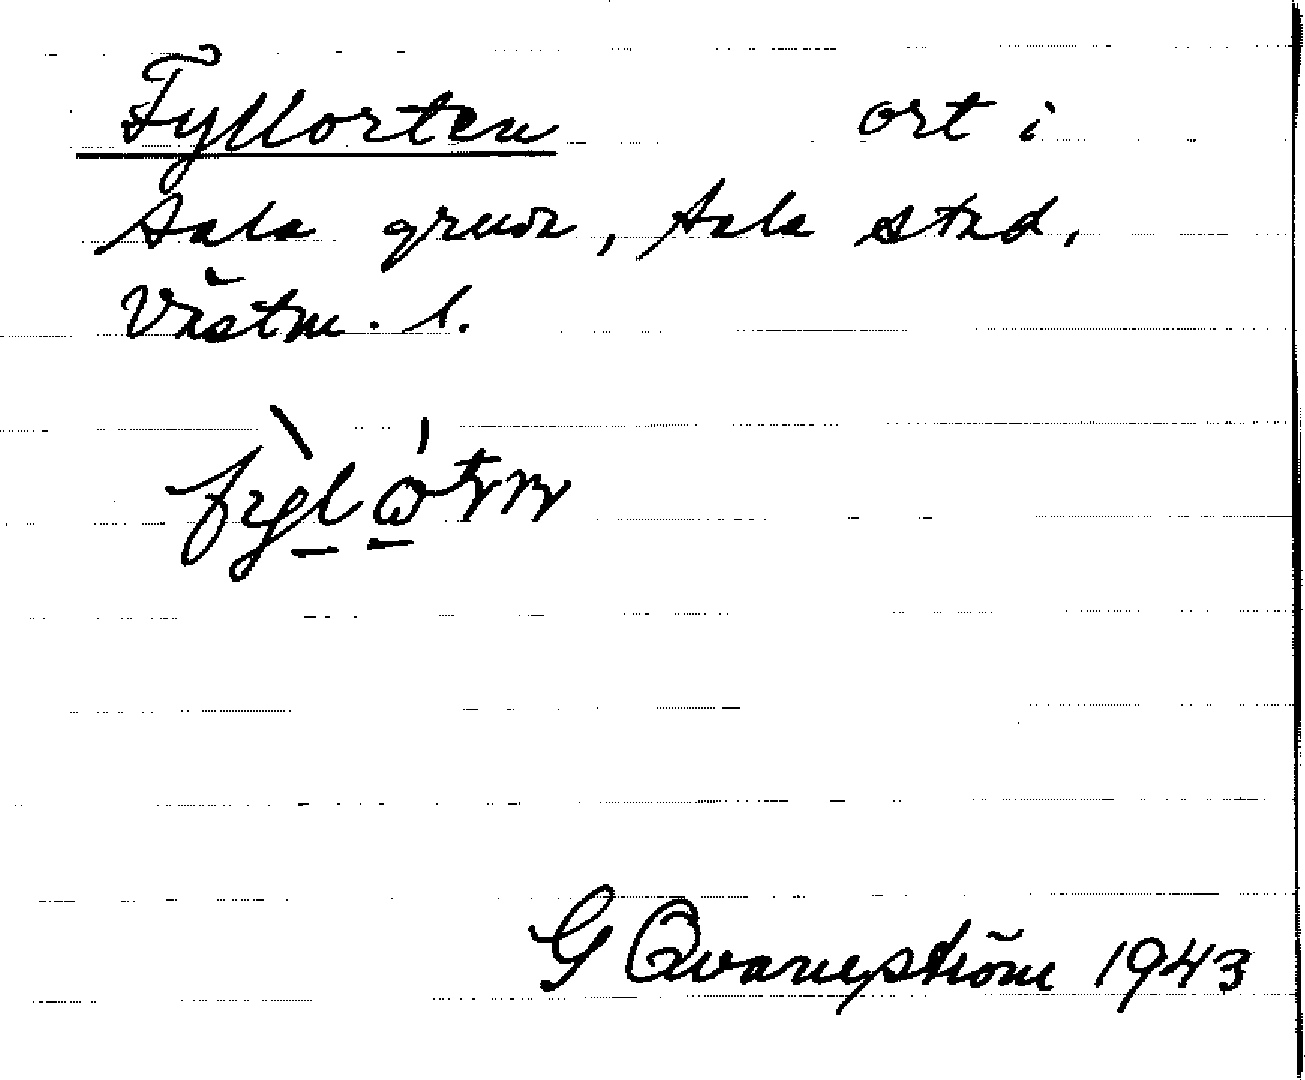 Fyllorten ort i
Sala gruva, Sala stad,
Västm. l.
G Qvarnström 1943